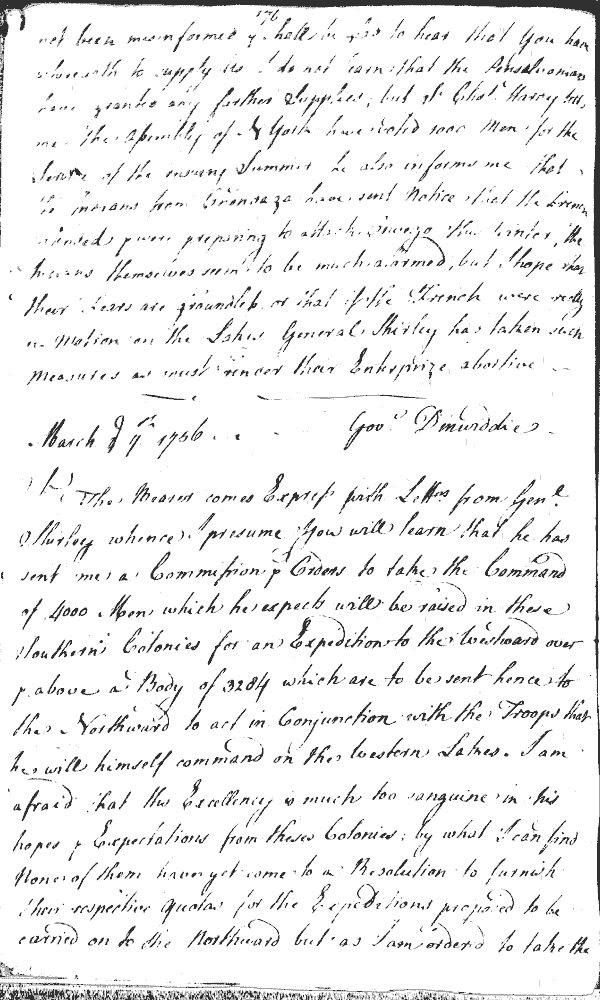 176
not been misinformed & shall be glad to hear that You have
wherewith to supply us I do not learn that the Pensilvanians
have granted any further Supplies, but Mr. Chas. Harvey tells
me the Assembly of N York have voted 1000 Men for the
Service of the ensuing Summer he also informs me that
the Indians from have sent Notice that the French
were preparing to attack Oswego this Winter, the
Indians themselves seem to be much alarmed, but I hope that
their Fears are groundless or that if the French were really
in Motion on the Lakes General Shirley has taken such
Measures as must render their Enterprize abortive
March 7th 1756 Govr. Dinwiddie
Sr. The Bearer comes Express with Letters from Genl.
Shirley whence I presume You will learn that he has
sent me a Commission & Orders to take the Command
of 4000 Men which he expects will be raised in these
Southern Colonies for an Expedition to the Westward over
& above a Body of 3284 which are to be sent hence to
the Northward to act in Conjunction with the Troops that
he will himself command on the Western Lakes. I am
afraid that His Excellency is much too sanguine in his
hopes & Expectations from these Colonies; by what I can find
None of them have yet come to a Resolution to furnish
their respective Quotas for the Expeditions proposed to be
carried on to the Northward but as I am order'd to take the